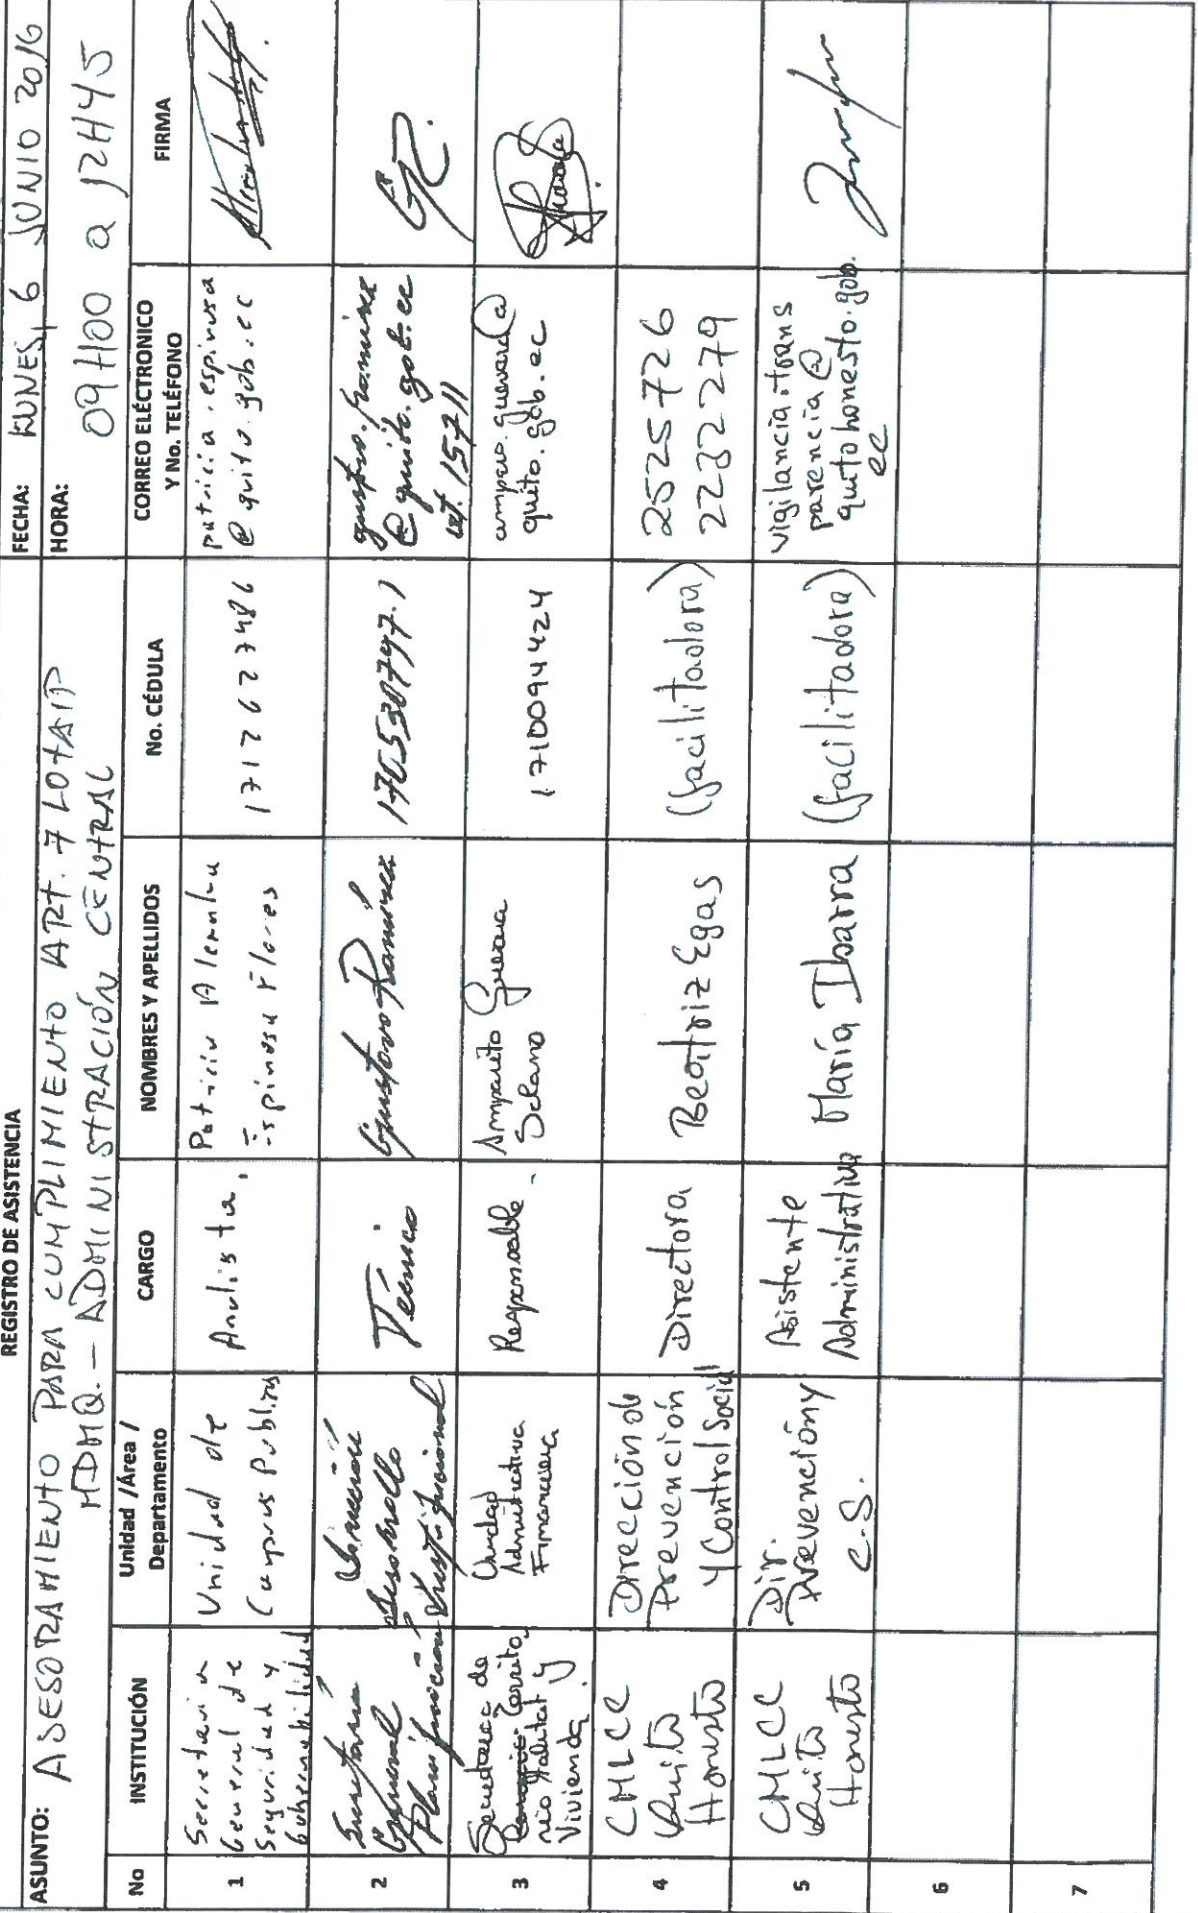 REGISTRO DE ASISTENCIA
ASUNTO: ASESORAMIENTO PARA CUMPLIMIENTO ART. 7 LOTAIP
MDMQ. - ADMINISTRACIÓN CENTRAL
FECHA: LUNES, 6 JUNIO 2016
HORA: 09H00 a 12H45
No INSTITUCIÓN Unidad /Área / Departamento CARGO NOMBRES Y APELLIDOS No. CÉDULA CORREO ELÉCTRONICO Y No. TELÉFONO FIRMA
1
Secretaria
General de
Seguridad y
Gobernabilidad
Unidad de
Campus Publicos
Analista.
Patricia Alexandra
Espinosa Flores
1712627486
patricia.espinosa
@quito.gob.ec
2
Secretaría
General
Planificación
Dirección
Desarrollo
Institucional
Técnico
Gustavo Ramírez
170530797.1
gustavo.ramirez
@quito.gob.ec
ext. 15711
3
Secretaria de
Territo
rio Habitat y
Vivienda
Unidad
Administrativa
Financiera
Responsable -
Amparito Guevara
Solano
1710094424
amparo.guevara@
quito.gob.ec
4
CMLCC
Quito
Honesto
Dirección de
Prevención
y Control Social
Directora
Beatriz Egas
(facilitadora)
2525726
2232279
5
CMLCC
Quito
Honesto
Dir.
Prevención y
C.S.
Asistente
Administrativa
María Ibarra
(facilitadora)
vigilancia.trans
parencia@
quitohonesto.gob.
ec
6
7